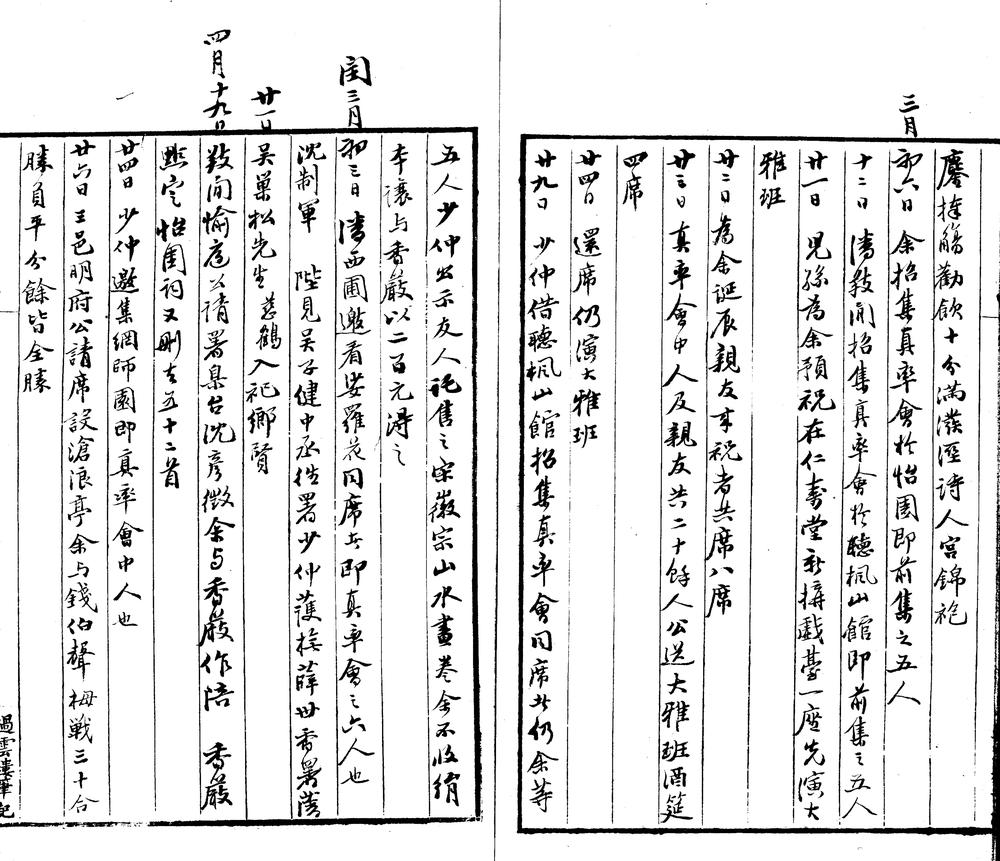 麐捧觴勸飲十分滿潑溼詩人宮錦袍
三月
初六日 余招集真率會於怡園即前集之五人
十二日 潘敘閒招集真率會於聽楓山館即前集之五人
廿一日 兒孫為余預祝在仁壽堂新搆戲臺一座先演大
雅班
廿二日為余誕辰親友來祝者共席八席
廿三日 真率會中人及親友共二十餘人公送大雅班酒筵
四席
廿四日 還席仍演大雅班
廿九日 少仲借聽楓山館招集真率會同席者仍余等
五人少仲出示友人託售之宋徽宗山水畫卷余不收絹
本讓与香嚴以二百元得之
閏三月
初三日 潘西圃邀看娑羅花同席者即真率會之六人也
沈制軍 陛見吳子健中丞往署少仲護撫薛世香署藩
廿一日
吳巢松先生慈鶴入祀鄉賢
四月十九日
敘閒愉庭公請署臬台沈彥徵余与香嚴作陪 香嚴
點定怡園詞又刪去五十二首
廿四日 少仲邀集網師園即真率會中人也
廿六日 王邑明府公請席設滄浪亭余与錢伯聲拇戰三十合
勝負平分餘皆全勝
過雲樓筆記